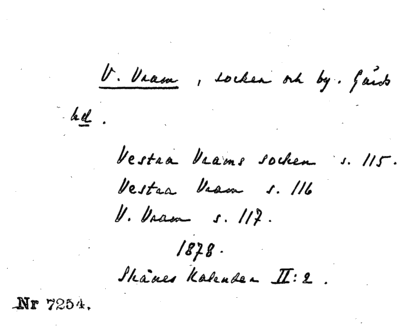 V. Vram, socken och by. Gärds
hd.
Vestra Vrams socken s. 115.
Vestra Vram s. 116
V. Vram s. 117.
1878.
Skånes Kalender II: 2.
Nr 7254.